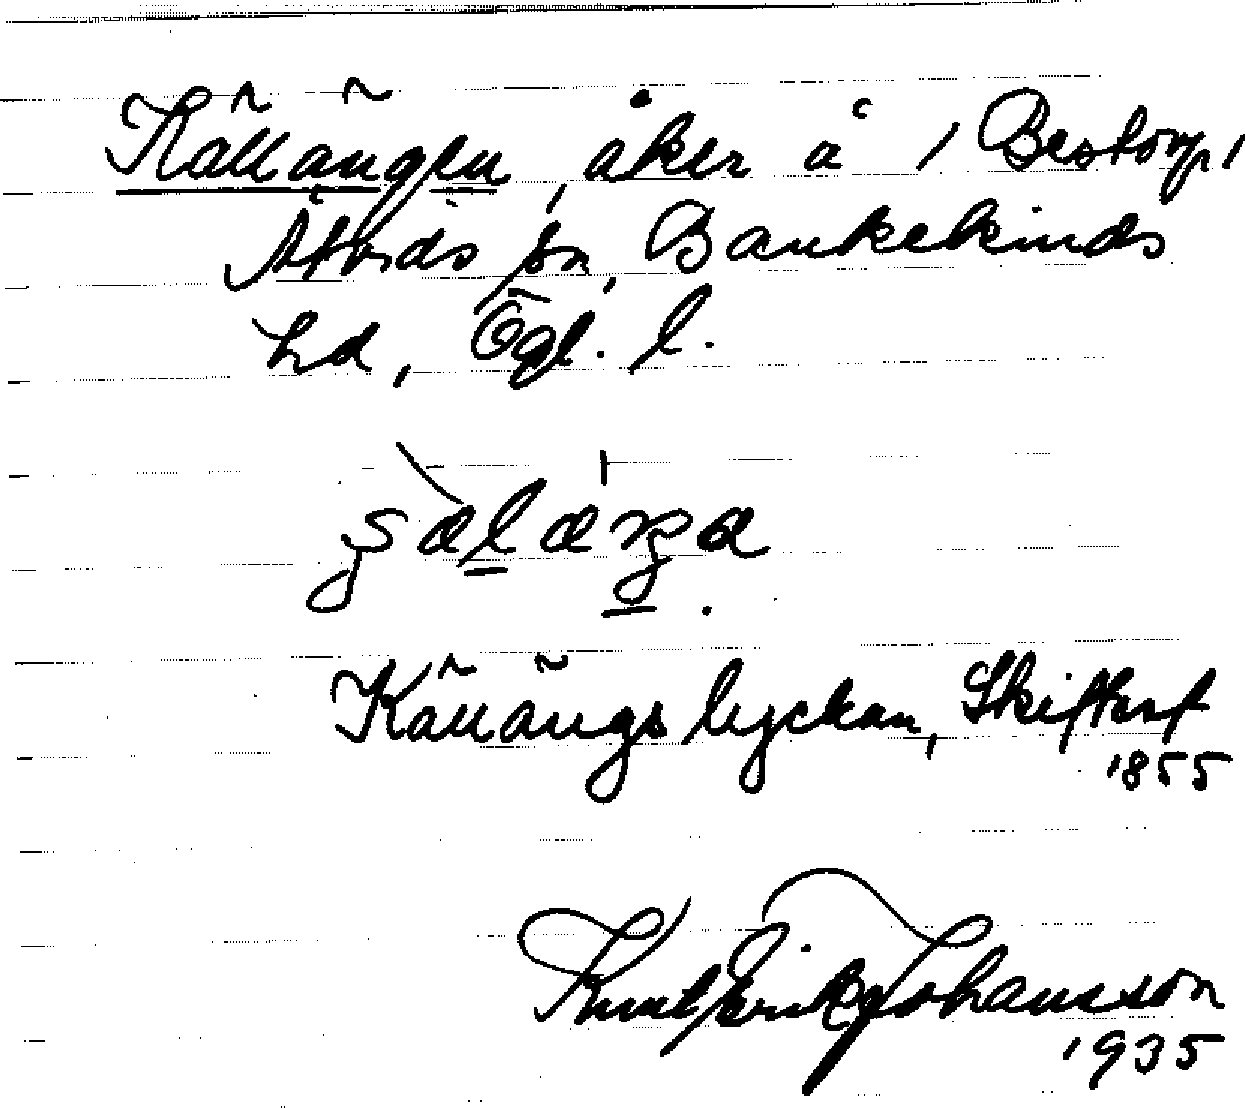 Källängen, åker å / Bestorp,
Åtvids sn, Bankekinds
hd, Ögl. l.
Källängslyckan, Skifteskf
1855
Knut Erik Johansson
1935